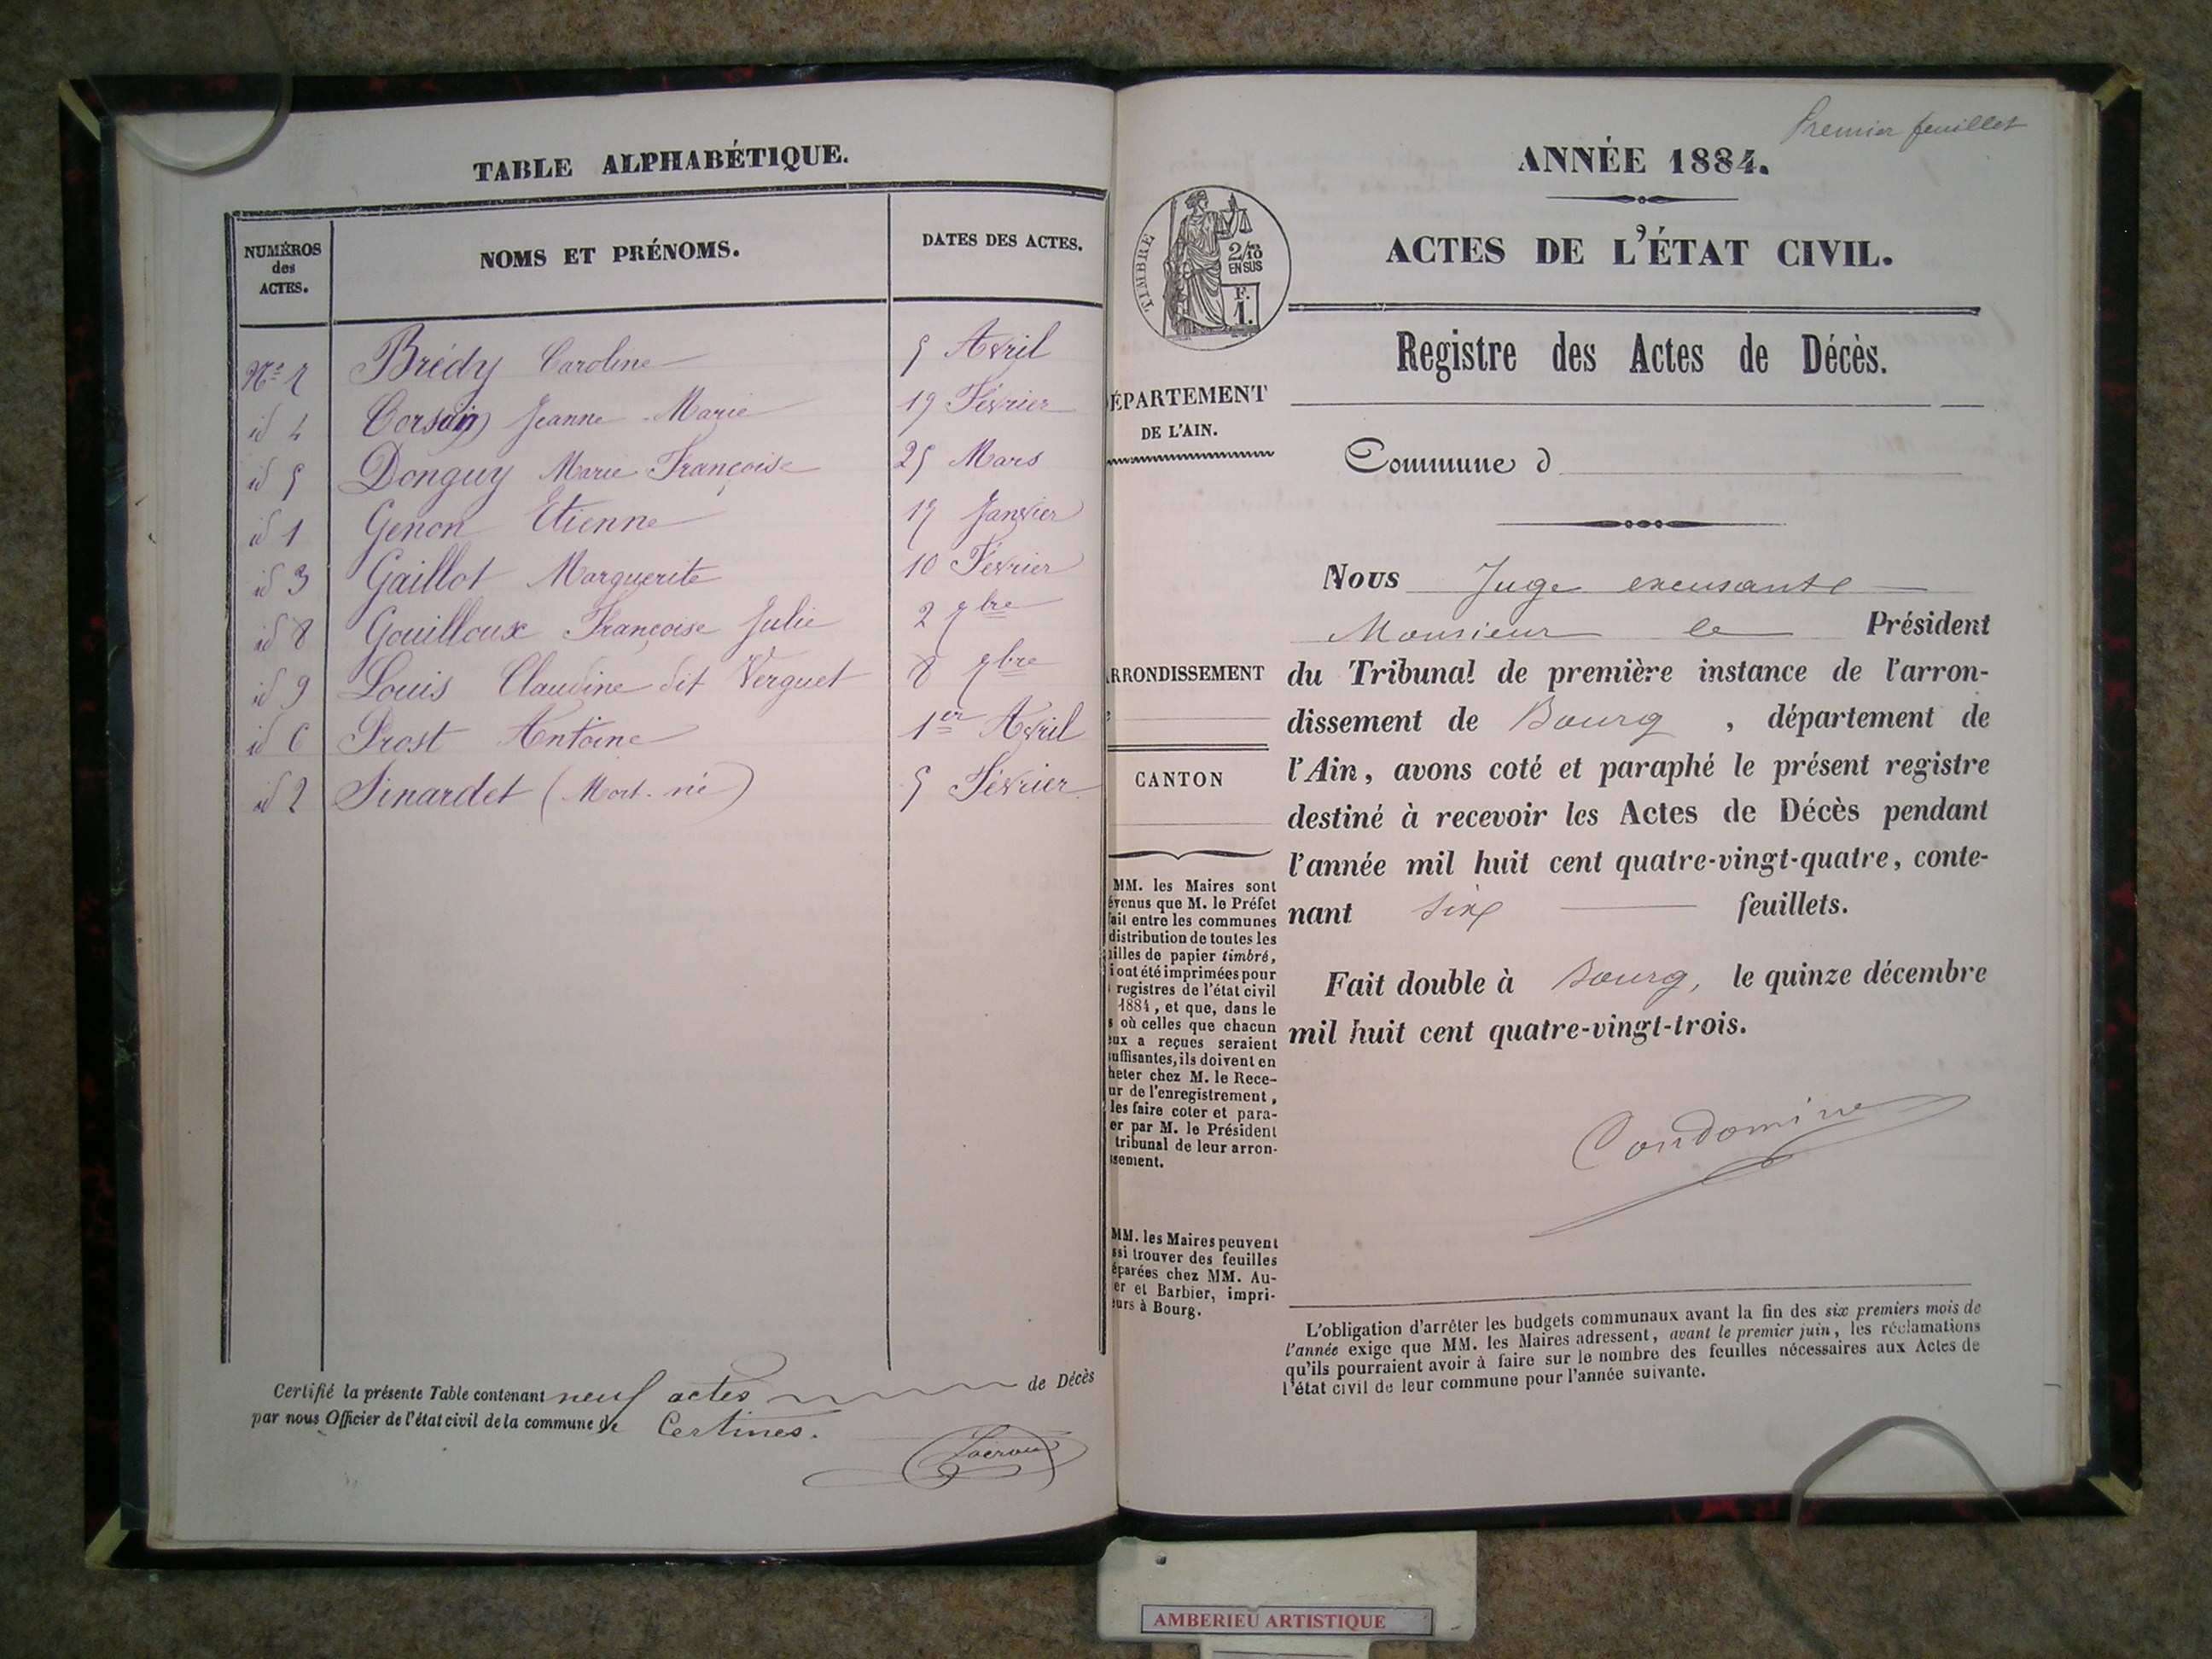 TABLE ALPHABÉTIQUE.
NUMÉROS
des
ACTES.
NOMS ET PRÉNOMS.
DATES DES ACTES.
Nº 7 Brédy Caroline 5 Avril
id 4 Corsain Jeanne Marie 19 Février
id 5 Donguy Marie Françoise 25 Mars
id 1 Genon Etienne 17 Janvier
id 3 Gaillot Marguerite 10 Février
id 8 Gouilloux Françoise Julie 2 7bre
id 9 Louis Claudine dit Verguet 8 7bre
id 6 Prost Antoine 1er Avril
id 2 Sinardet (Mort-né) 5 Février
Certifié la présente Table contenant neuf actes de Décès
par nous Officier de l'état civil de la commune de Certines.
Premier feuillet
ANNÉE 1884.
ACTES DE L'ÉTAT CIVIL.
TIMBRE
2/10
EN SUS
F.
1.
Registre des Actes de Décès.
ÉPARTEMENT
DE L'AIN.
Commune d
Nous Juge excusant
Monsieur le Président
RRONDISSEMENT
du Tribunal de première instance de l'arron-
dissement de Bourg, département de
CANTON
l'Ain, avons coté et paraphé le présent registre
destiné à recevoir les Actes de Décès pendant
l'année mil huit cent quatre-vingt-quatre, conte-
nant six feuillets.
Fait double à Bourg, le quinze décembre
mil huit cent quatre-vingt-trois.
Condomine
MM. les Maires sont
évenus que M. le Préfet
fait entre les communes
distribution de toutes les
uilles de papier timbré,
i ont été imprimées pour
registres de l'état civil
1884, et que, dans le
s où celles que chacun
eux a reçues seraient
suffisantes, ils doivent en
heter chez M. le Rece-
ur de l'enregistrement,
les faire coter et para-
er par M. le Président
tribunal de leur arron-
ssement.
MM. les Maires peuvent
ssi trouver des feuilles
éparées chez MM. Au-
er et Barbier, impri-
eurs à Bourg.
L'obligation d'arrêter les budgets communaux avant la fin des six premiers mois de
l'année exige que MM. les Maires adressent, avant le premier juin, les réclamations
qu'ils pourraient avoir à faire sur le nombre des feuilles nécessaires aux Actes de
l'état civil de leur commune pour l'année suivante.
AMBERIEU ARTISTIQUE